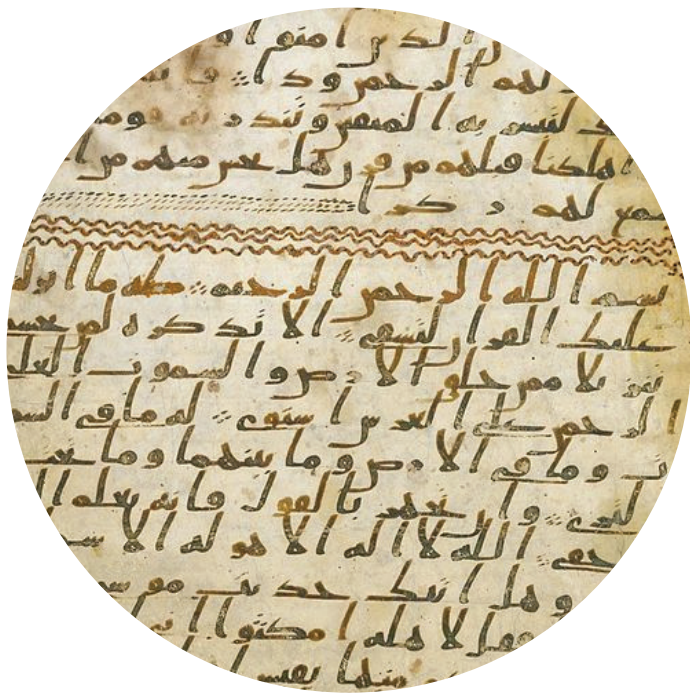 الذين امنوا
لهم الرحمن ودا فانما
لتبشر به المتقين وتنذر به قوما
اهلكنا قبلهم من قرن هل تحس منهم من ا
تسمع لهم ركزا
بسم الله الرحمن الرحيم طه ما انزلنا
عليك القران لتشقى الا تذكرة لمن يخشى
تنزيلا ممن خلق الارض والسموت العلى
الرحمن على العرش استوى له ما في السمو
ت وما في الارض وما بينهما وما تحت
الثرى وان تجهر بالقول فانه يعلم ا
خفى الله لا اله الا هو له الاسما
وهل اتيك حديث موسى
فقل لاهله امكثوا اني
منها بقبس